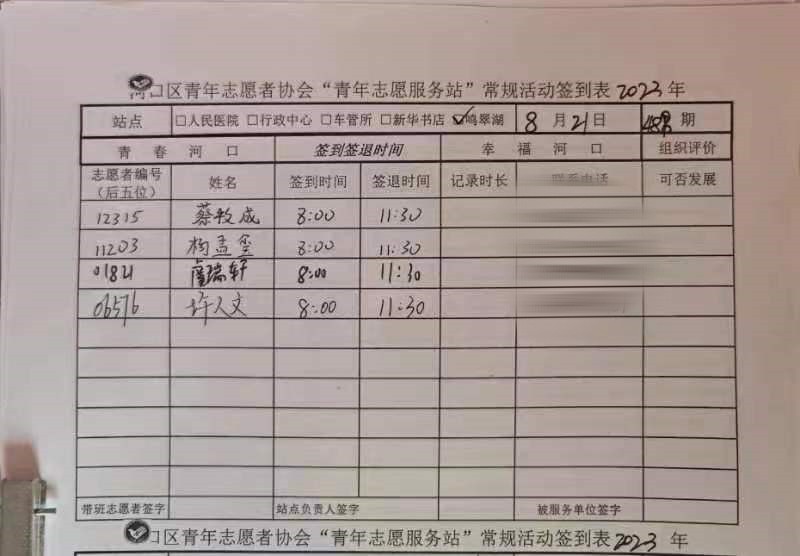 河口区青年志愿者协会“青年志愿服务站”常规活动签到表2023年
站点 □人民医院 □行政中心 □车管所 □新华书店 ☑鸣翠湖 8月21日 期
青春河口 签到签退时间 幸福河口 组织评价
志愿者编号（后五位） 姓名 签到时间 签退时间 记录时长 联系电话 可否发展
12315 蔡牧成 8:00 11:30
11203 8:00 11:30
01821 卢瑞轩 8:00 11:30
06576 许人文 8:00 11:30
带班志愿者签字 站点负责人签字 被服务单位签字
口区青年志愿者协会“青年志愿服务站”常规活动签到表2023年